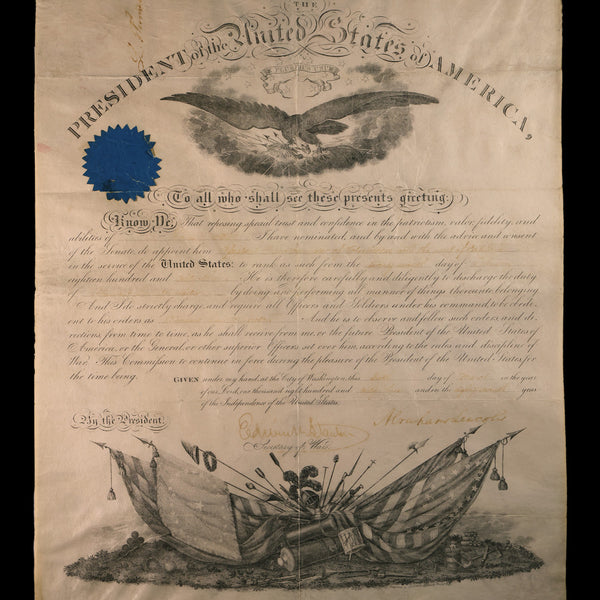 THE
PRESIDENT of the United States of AMERICA,
To all who shall see these presents greeting:
Know Ye, That reposing special trust and confidence in the patriotism, valor, fidelity, and
abilities of I have nominated, and by and with the advice and consent
of the Senate, do appoint him
in the service of the United States: to rank as such from the day of
eighteen hundred and He is therefore carefully and diligently to discharge the duty
of by doing and performing all manner of things thereunto belonging.
And I do strictly charge, and require all Officers and Soldiers under his command to be obedi-
ent to his orders as And he is to observe and follow such orders, and di-
rections, from time to time, as he shall receive from me, or the future President of the United States of
America, or the General, or other superior Officers set over him, according to the rules and discipline of
War. This Commission to continue in force during the pleasure of the President of the United States, for
the time being.
GIVEN under my hand, at the City of Washington, this day of in the year
of our Lord, one thousand eight hundred and and in the year
of the Independence of the United States.
By the President,
Edwin M Stanton
Abraham Lincoln
Secretary of War.